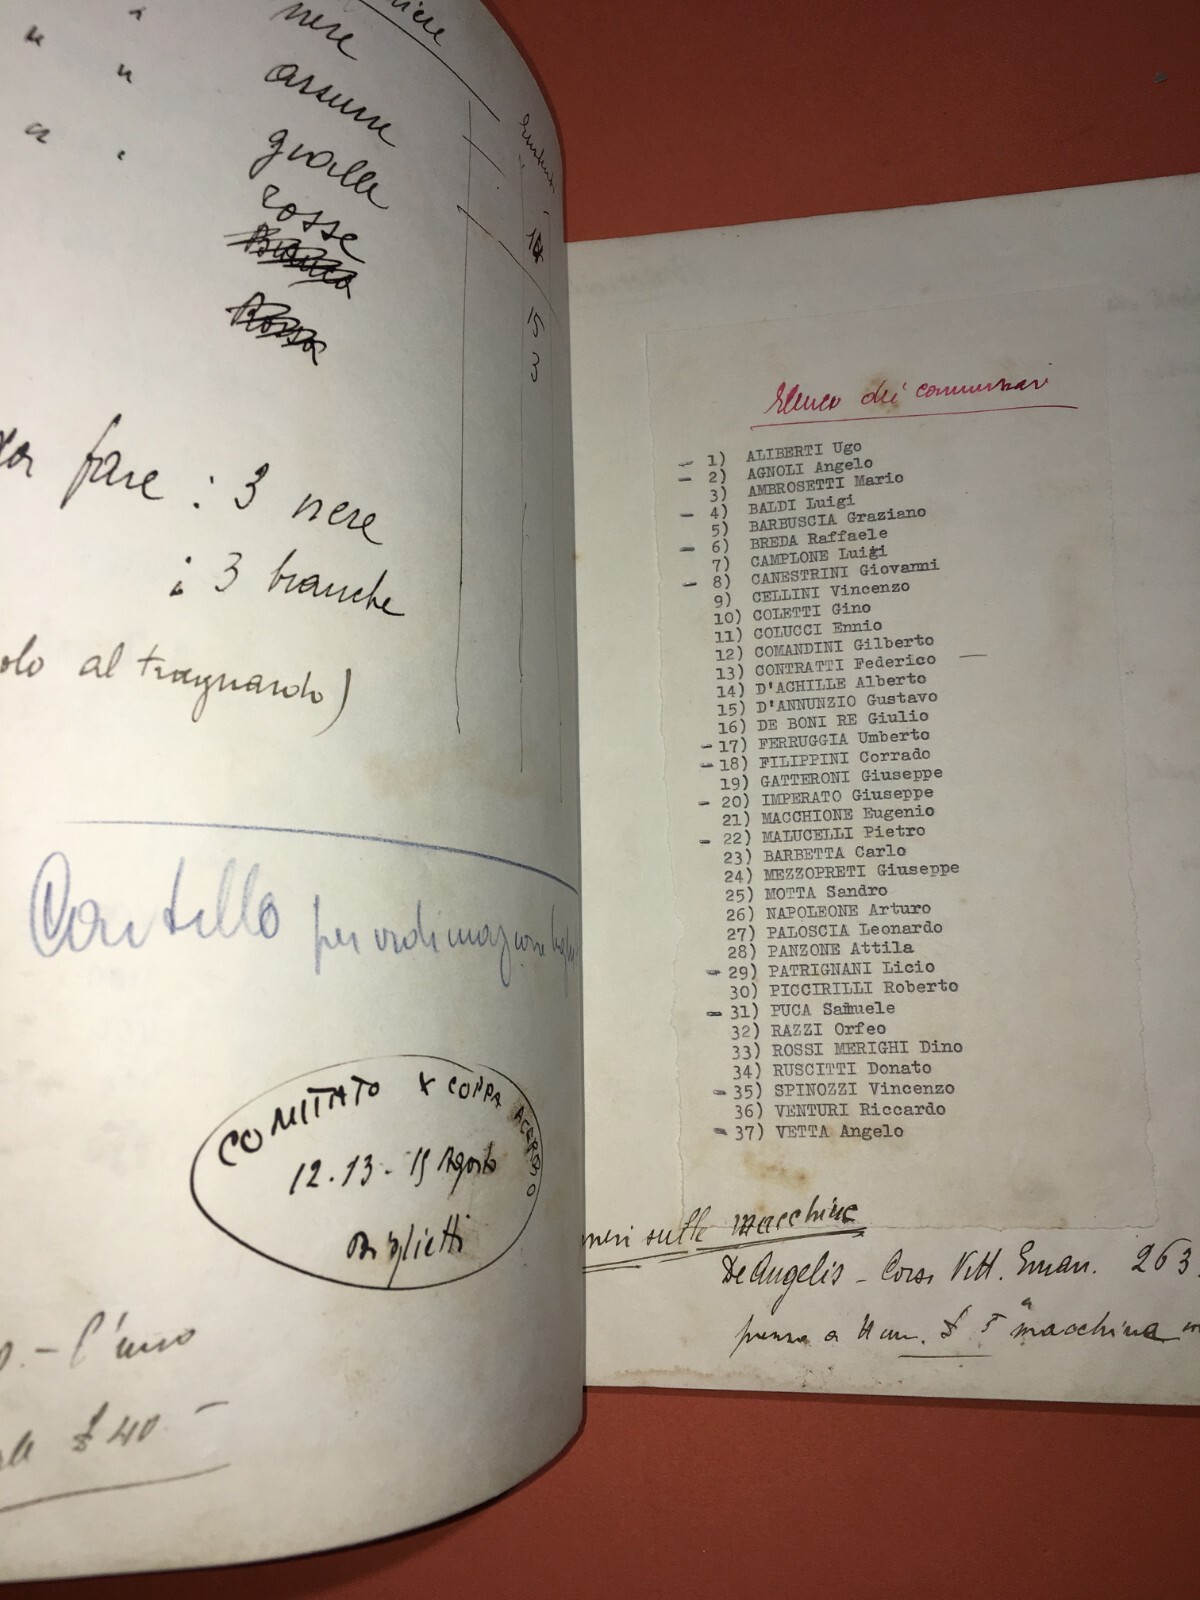 nere
azzurre
gialle
rosse
15
3
fare : 3 nere
: 3 bianche
al traguardo)
Cartello per vidimazione
COMITATO X COPPA ACERBO
12.13 - 15 Agosto
Biglietti
- l'uno
£ 40 -
Elenco dei commissari
1) ALIBERTI Ugo
2) AGNOLI Angelo
3) AMBROSETTI Mario
4) BALDI Luigi
5) BARBUSCIA Graziano
6) BREDA Raffaele
7) CAMPLONE Luigi
8) CANESTRINI Giovanni
9) CELLINI Vincenzo
10) COLETTI Gino
11) COLUCCI Ennio
12) COMANDINI Gilberto
13) CONTRATTI Federico
14) D'ACHILLE Alberto
15) D'ANNUNZIO Gustavo
16) DE BONI RE Giulio
17) FERRUGGIA Umberto
18) FILIPPINI Corrado
19) GATTERONI Giuseppe
20) IMPERATO Giuseppe
21) MACCHIONE Eugenio
22) MALUCELLI Pietro
23) BARBETTA Carlo
24) MEZZOPRETI Giuseppe
25) MOTTA Sandro
26) NAPOLEONE Arturo
27) PALOSCIA Leonardo
28) PANZONE Attila
29) PATRIGNANI Licio
30) PICCIRILLI Roberto
31) PUCA Samuele
32) RAZZI Orfeo
33) ROSSI MERIGHI Dino
34) RUSCITTI Donato
35) SPINOZZI Vincenzo
36) VENTURI Riccardo
37) VETTA Angelo
sulle macchine
De Angelis - Corso Vitt. Eman. 263
macchina